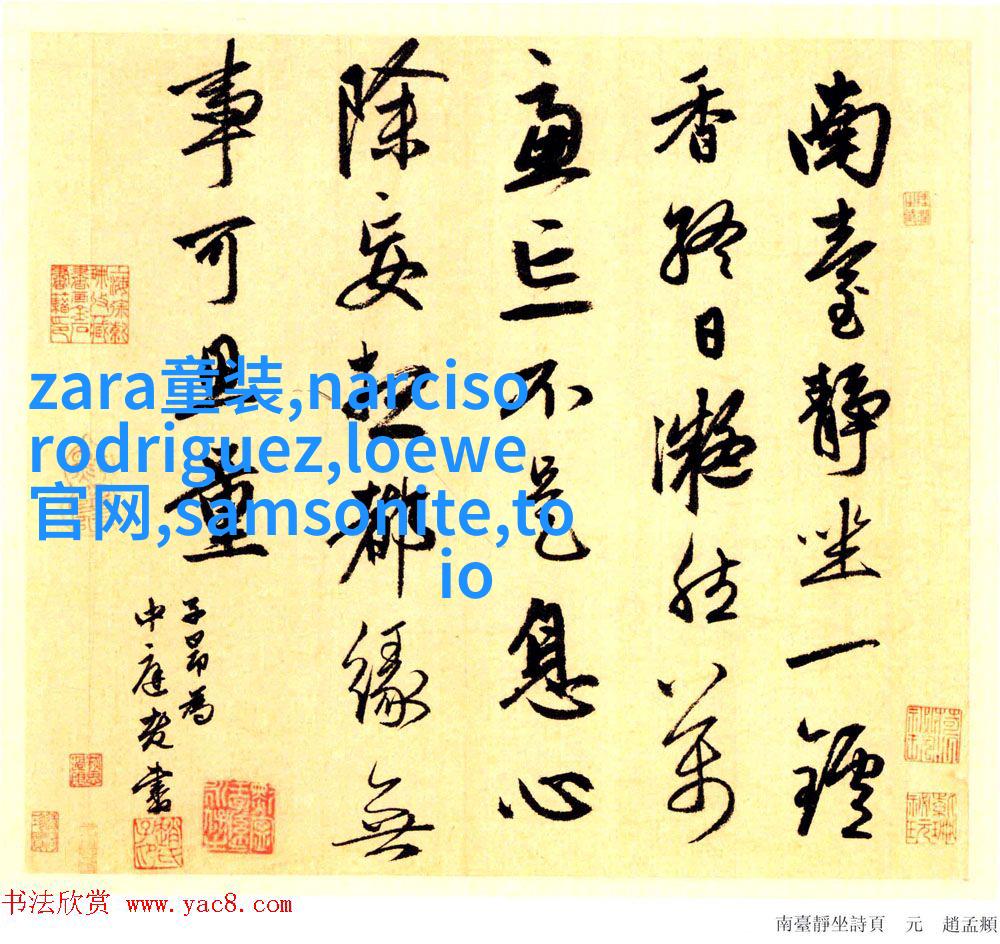 南臺靜坐一鑪
香終日凝然萬
慮亡不是息心
除妄想都緣無
事可量
子昂為
中庭老書
zara童装,narciso
rodriguez,loewe
官网,samsonite,to
io
书法欣赏 www.yac8.com
南臺靜坐詩頁 元 趙孟頫